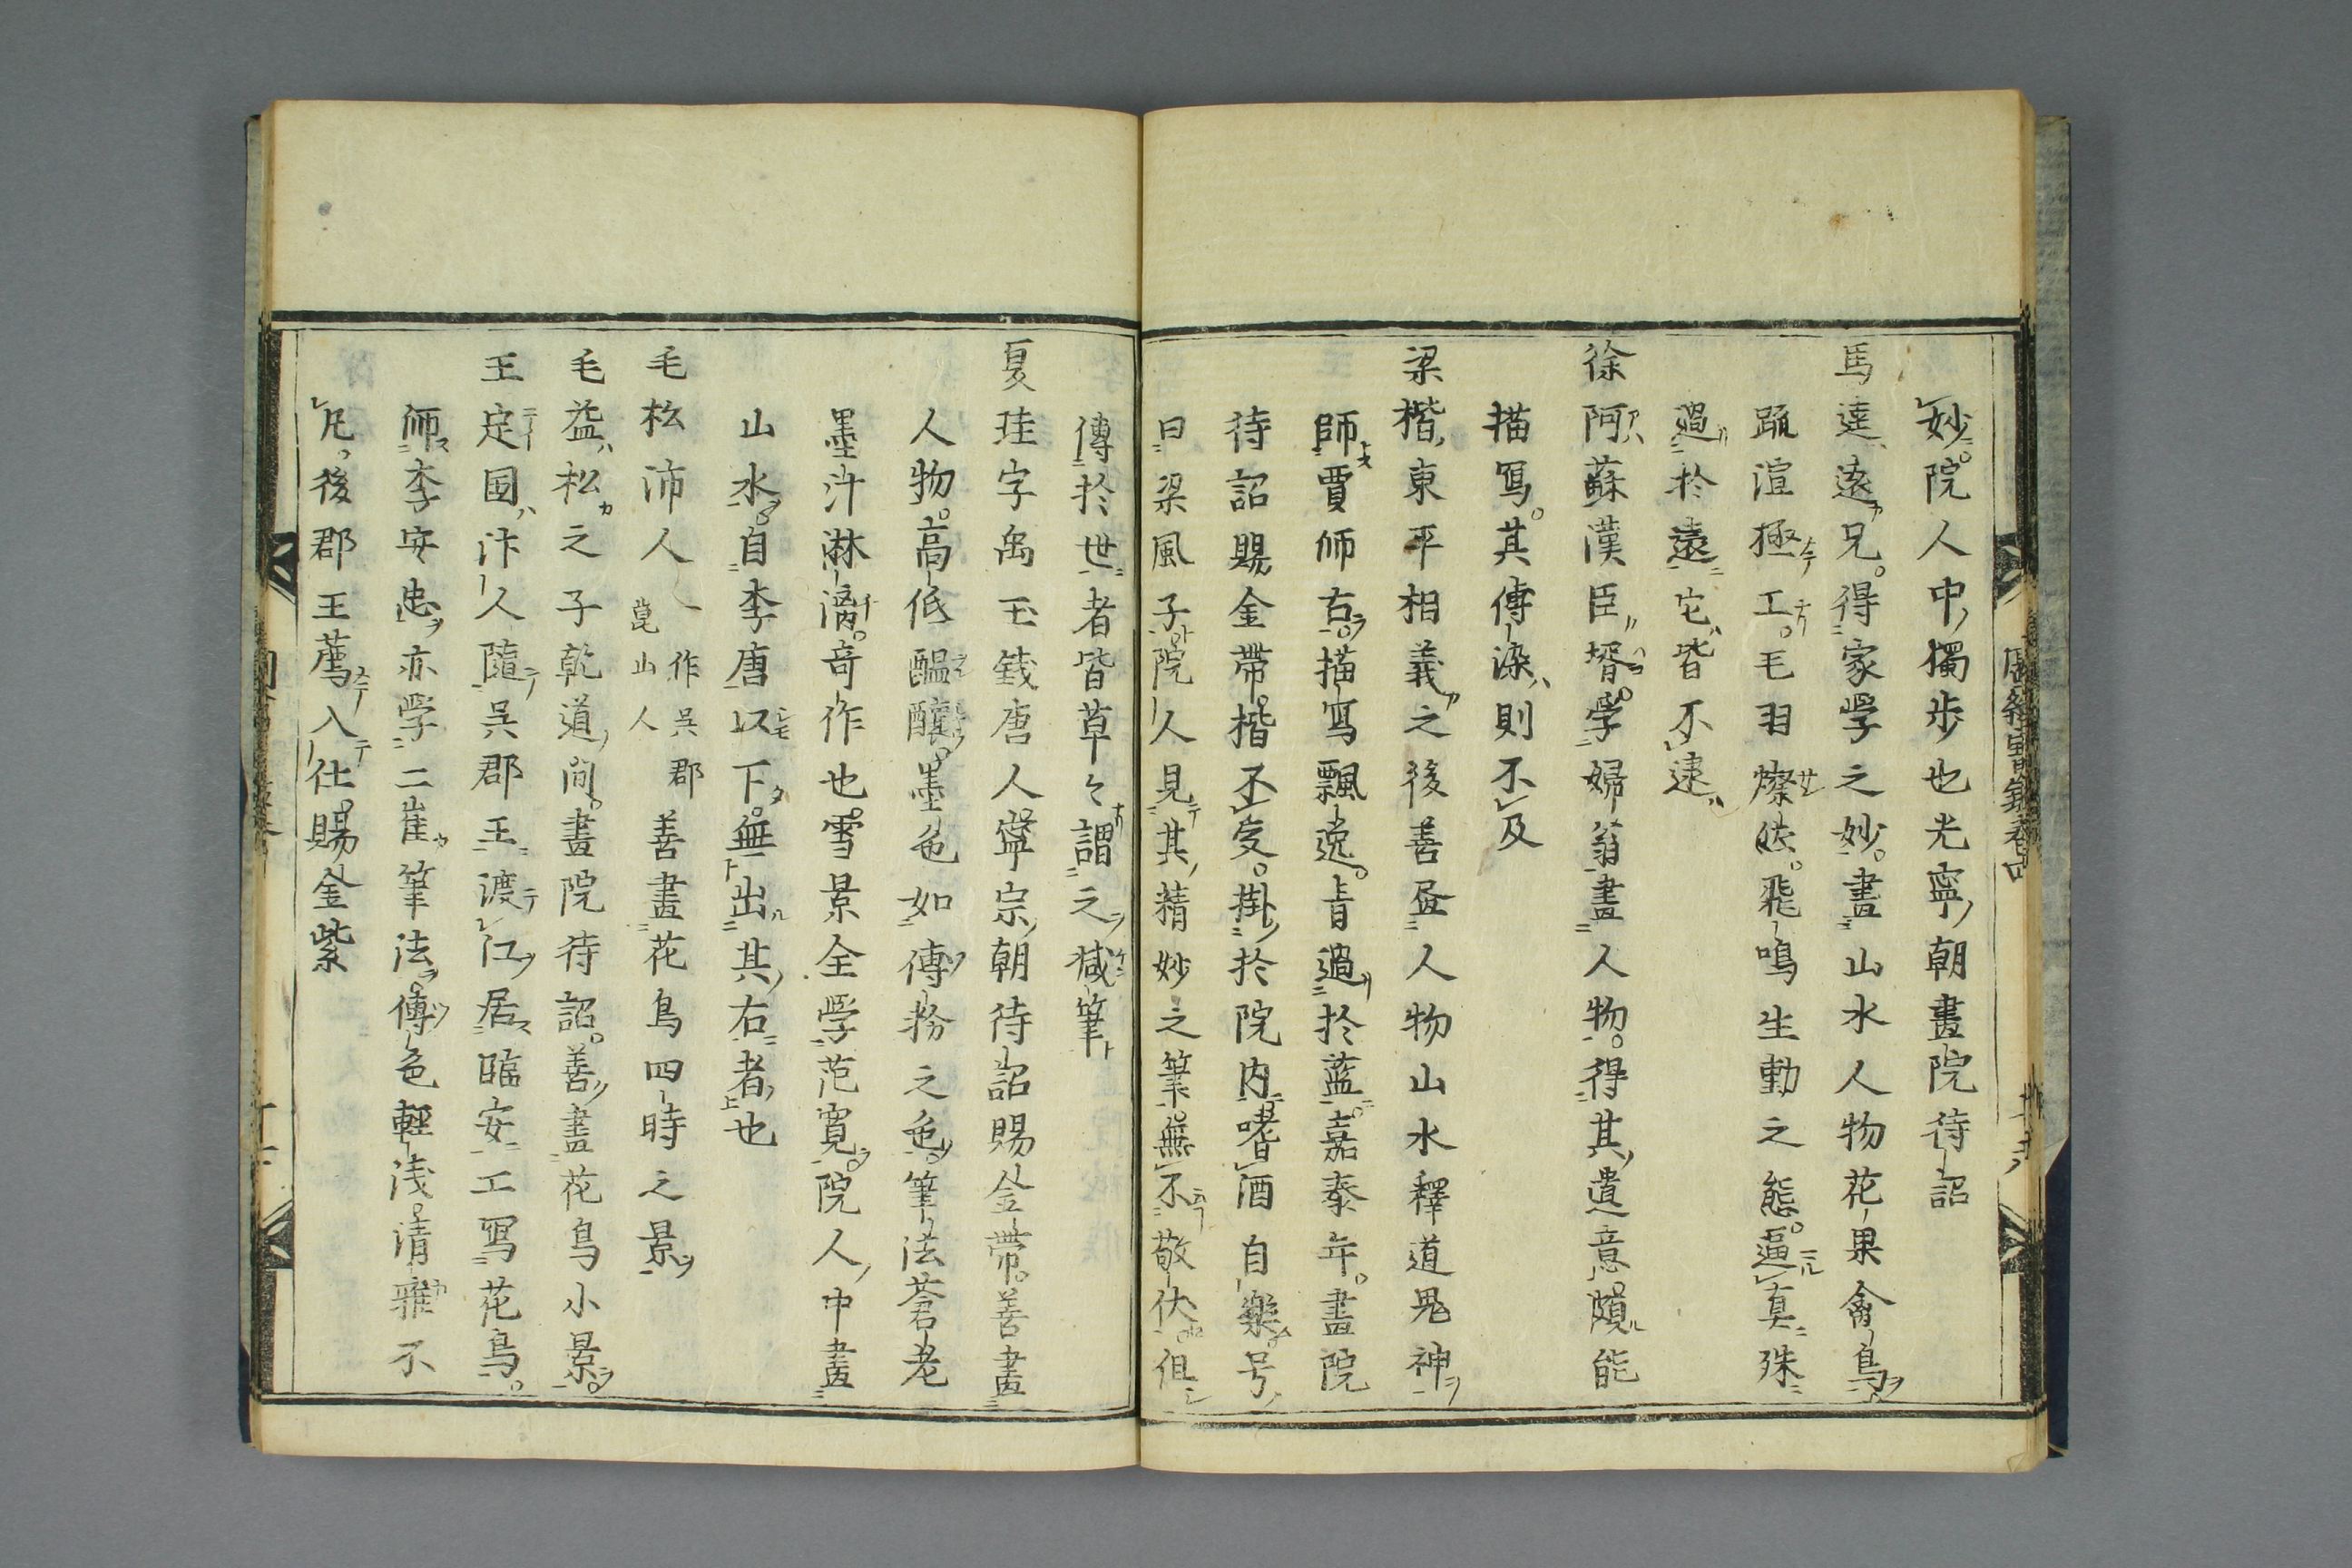 妙院人中獨步也光寧朝畫院待詔
馬逵遠兄得家學之妙畫山水人物花果禽鳥
疏渲極工毛羽燦然飛鳴生動之態逼真殊
過於遠它皆不逮
徐阿蘇漢臣壻學婦翁畫人物得其遺意頗能
描寫其傳染則不及
梁楷東平相義之後善畫人物山水釋道鬼神
師賈师右描寫飄逸青過於藍嘉泰年畫院
待詔賜金帶楷不受掛於院内嗜酒自樂号
曰梁風子院人見其精妙之筆無不敬伏但
傳於世者皆草々謂之減筆
夏珪字禹玉錢唐人寧宗朝待詔賜金帶善畫
人物高低醞釀墨色如傅粉之色筆法蒼老
墨汁淋漓竒作也雪景全學范寬院人中畫
山水自李唐以下無出其右者也
毛松沛人一作吳郡崑山人善畫花鳥四時之景
毛益松之子乾道間畫院待詔善畫花鳥小景
王定国汴人隨吳郡王渡江居臨安工寫花鳥
师李安忠亦學二崔筆法傅色輕浅清雅不
凡後郡王薦入仕賜金紫